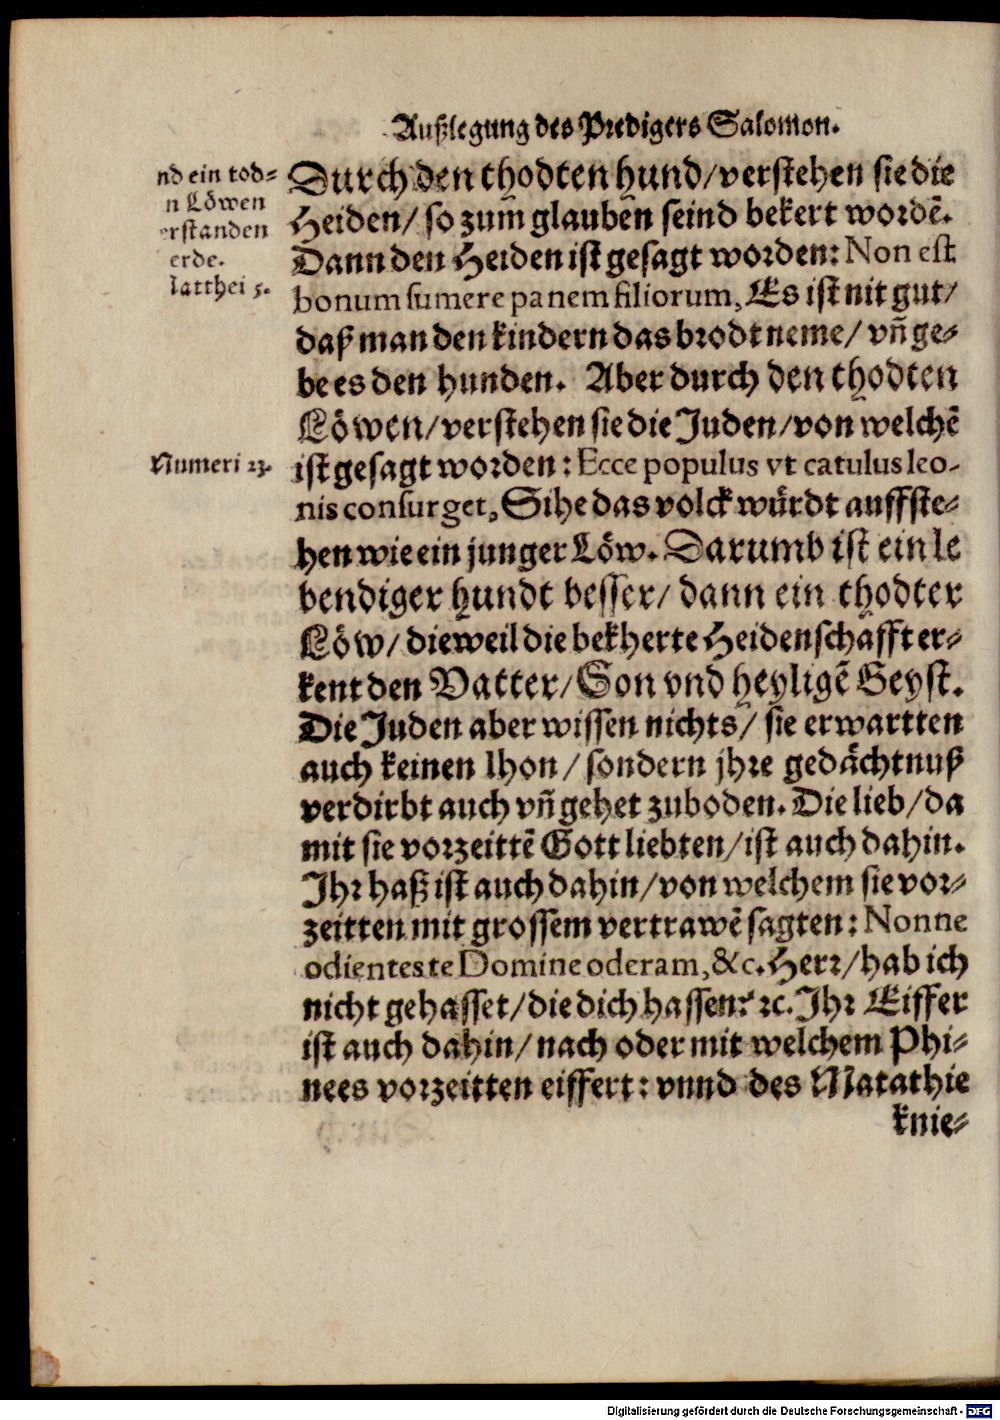 Außlegung des Predigers Salomon.
nd ein tod⸗
n Löwen
rstanden
erde.
Matthei 5.
Durch den thodten hund/verstehen sie die
Heiden/ so zum̃ glauben seind bekert wordẽ.
Dann den Heiden ist gesagt worden: Non est
bonum sumere panem filiorum, Es ist nit gut/
daß man den kindern das brodt neme/ vñ ge⸗
be es den hunden. Aber durch den thodten
Löwen/verstehen sie die Juden/von welchẽ
Numeri 23.
ist gesagt worden: Ecce populus vt catulus leo-
nis consurget, Sihe das volck würdt auffste⸗
hen wie ein junger Löw. Darumb ist ein le
bendiger hundt besser/ dann ein thodter
Löw/ dieweil die bekherte Heidenschafft er⸗
kent den Vatter/ Son vnd heyligẽ Geyst.
Die Juden aber wissen nichts/ sie erwartten
auch keinen lhon/ sondern jhre gedächtnuß
verdirbt auch vñ gehet zuboden. Die lieb/da
mit sie vorzeittẽ Gott liebten/ist auch dahin.
Ihr haß ist auch dahin/von welchem sie vor⸗
zeitten mit grossem vertrawẽ sagten: Nonne
odientes te Domine oderam, &c. Herr/hab ich
nicht gehasset/die dich hassen? ꝛc. Ihr Eiffer
ist auch dahin/nach oder mit welchem Phi⸗
nees vorzeitten eiffert: vnnd des Matathie
knie⸗
Digitalisierung gefördert durch die Deutsche Forschungsgemeinschaft - DFG